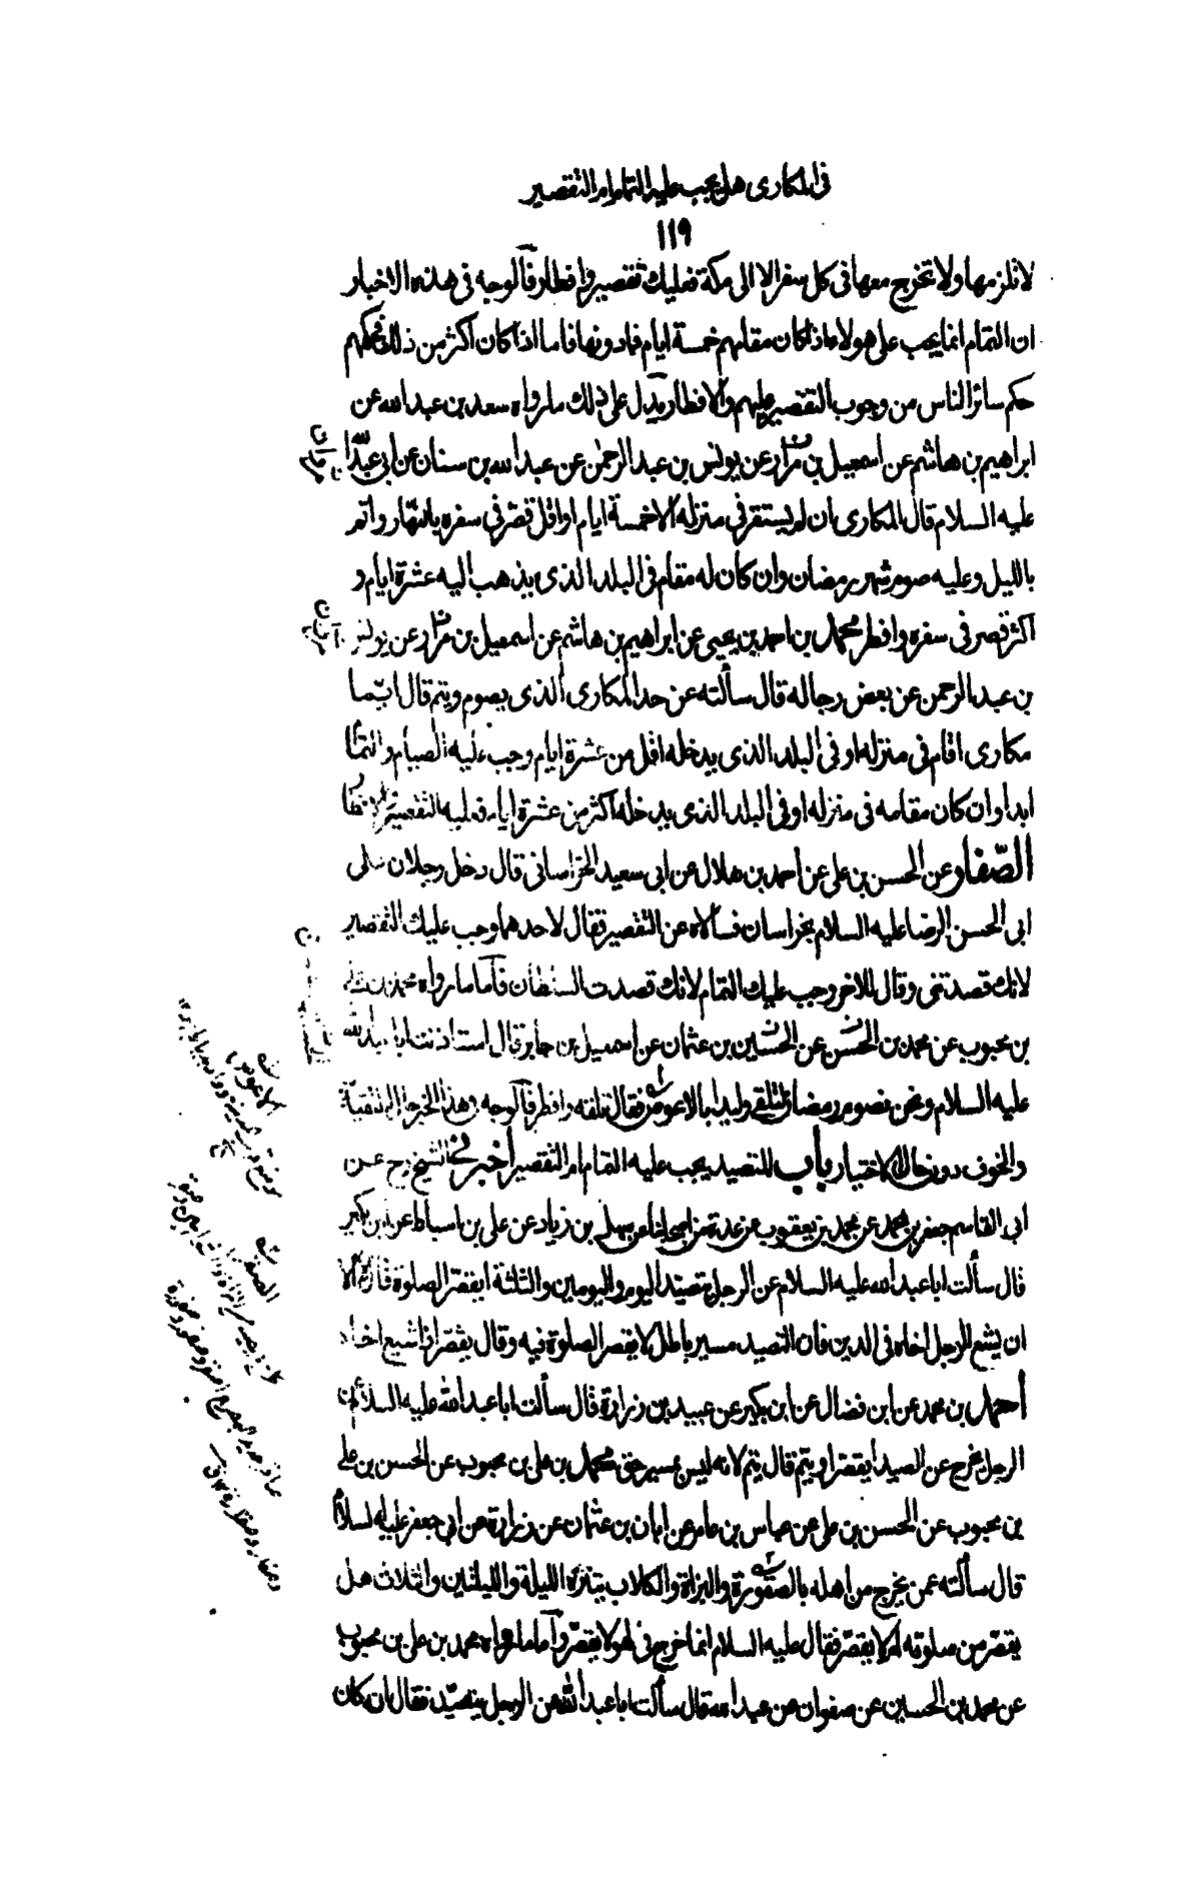 فى المكارى هل يجب عليه التمام ام التقصير
١١٩
لا تلزمها ولا تخرج معها فى كل سفر الا الى مكة فعليك تقصير وافطار فالوجه فى هذه الاخبار
ان التمام انما يجب على هولاء اذا كان مقامهم خمسة ايام فما دونها فاما اذا كان اكثر من ذلك فحكمهم
حكم سائر الناس من وجوب التقصير عليهم والافطار يدل على ذلك ما رواه سعد بن عبد الله عن
ابراهيم بن هاشم عن اسمعيل بن مرار عن يونس بن عبد الرحمن عن عبد الله بن سنان عن ابى عبد الله
عليه السلام قال المكارى ان لم يستقر فى منزله الا خمسة ايام او اقل قصّر فى سفره بالنهار واتم
بالليل وعليه صوم شهر رمضان وان كان له مقام فى البلد الذى يذهب اليه عشرة ايام و
اكثر قصر فى سفره وافطر محمد بن احمد بن يحيى عن ابراهيم بن هاشم عن اسمعيل بن مرار عن يونس
بن عبد الرحمن عن بعض رجاله قال سألته عن حد المكارى الذى يصوم ويتم قال ايّما
مكارى اقام فى منزله او فى البلد الذى يدخله اقل من عشرة ايام وجب عليه الصيام والتمام
ابدا وان كان مقامه فى منزله او فى البلد الذى يدخله اكثر من عشرة ايام فعليه التقصير والافطار
الصّفار عن الحسن بن على عن احمد بن هلال عن ابى سعيد الخراسانى قال دخل رجلان على
ابى الحسن الرضا عليه السلام بخراسان فسألاه عن التقصير فقال لاحدهما وجب عليك التقصير
لانك قصدتنى وقال للاخر وجب عليك التمام لانك قصدت السلطان فاما ما رواه محمد بن على
بن محبوب عن محمد بن الحسن عن الحسين بن عثمان عن اسمعيل بن جابر قال استاذنت ابا عبد الله
عليه السلام ونحن نصوم رمضان لنلقى وليدا بالاعوص فقال تلقه وافطر فالوجه فى هذا الخبر حال التقية
والخوف دون حال الاختيار باب المتصيد يجب عليه التمام ام التقصير أخبرنى الشيخ رح عن
ابى القاسم جعفر بن محمد عن محمد بن يعقوب عن عدة من اصحابنا عن سهل بن زياد عن على بن اسباط عن ابن بكير
قال سألت ابا عبد الله عليه السلام عن الرجل يتصيد اليوم واليومين والثلثة ايقصّر الصلوة قال لا الا
ان يشيع الرجل اخاه فى الدين فان التصيد مسير باطل لا يقصر الصلوة فيه وقال يقصّر اذا شيع اخاه
أحمد بن محمد عن ابن فضال عن ابن بكير عن عبيد بن زرارة قال سألت ابا عبد الله عليه السلام عن
الرجل يخرج عن الصيد أيقصر او يتم قال يتم لانه ليس بمسير حق محمد بن على بن محبوب عن الحسن بن على
بن محبوب عن الحسن بن على عن عباس بن عامر عن ابان بن عثمان عن زرارة عن ابى جعفر عليه السلام
قال سألته عمن يخرج من اهله بالصقورة والبزاة والكلاب يتنزه الليلة والليلتين والثلاث هل
يقصّر من صلوته ام لا يقصّر فقال عليه السلام انما خرج فى لهو لا يقصّر وأما ما رواه محمد بن على بن محبوب
عن محمد بن الحسين عن صفوان عن عبد الله قال سألت ابا عبد الله عن الرجل يتصيّد فقال ان كان